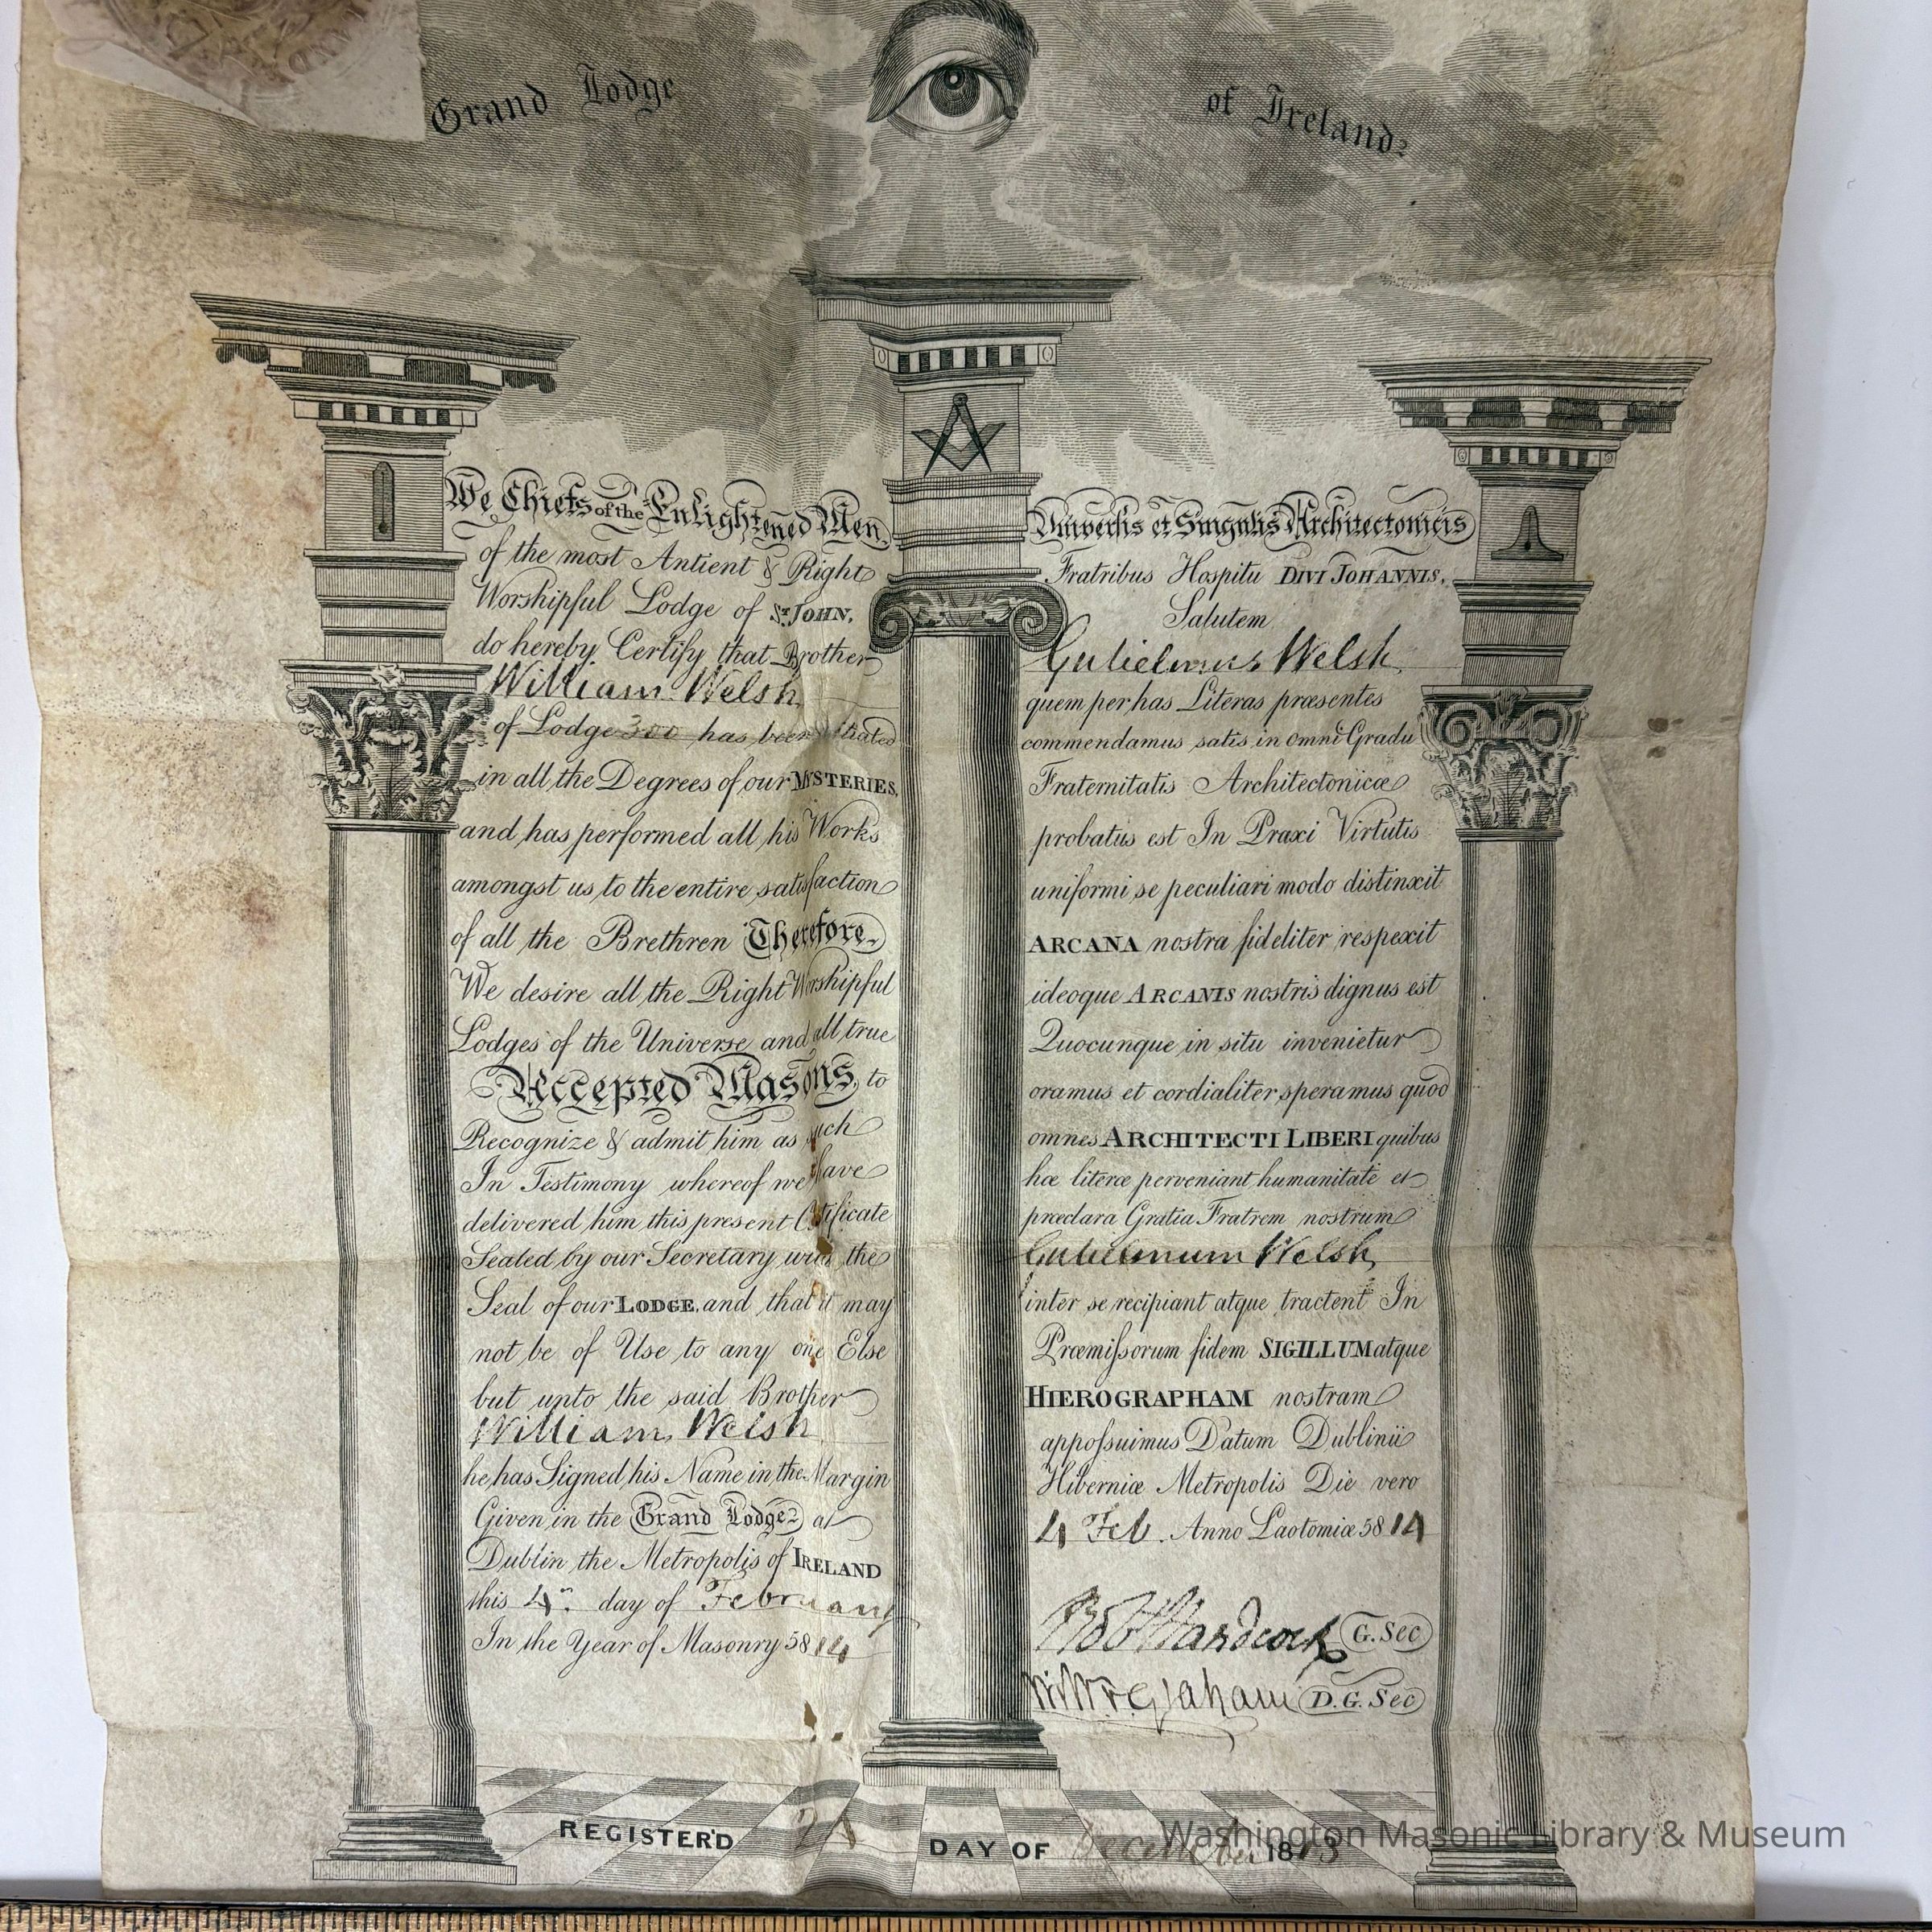 Grand Lodge of Ireland
We Chiefs of the Enlightened Men
of the most Antient & Right
Worshipful Lodge of St. JOHN,
do hereby Certify that Brother
William Welsh
of Lodge 300 has been
in all the Degrees of our MYSTERIES,
and has performed all his Works
amongst us to the entire satisfaction
of all the Brethren Therefore
We desire all the Right Worshipful
Lodges of the Universe and all true
Accepted Masons, to
Recognize & admit him as such
In Testimony whereof we have
delivered him this present Certificate
Sealed by our Secretary with the
Seal of our LODGE, and that it may
not be of Use to any one Else
but unto the said Brother
William Welsh
he has Signed his Name in the Margin
Given in the Grand Lodge at
Dublin the Metropolis of IRELAND
this 4th day of February
In the Year of Masonry 5814
Universis et Singulis Architectonicis
Fratribus Hospitii DIVI JOHANNIS,
Salutem
Gulielmus Welsh
quem per has Literas præsentes
commendamus satis in omni Gradu
Fraternitatis Architectonicæ
probatus est In Praxi Virtutis
uniformi se peculiari modo distinxit
ARCANA nostra fideliter respexit
ideoque ARCANIS nostris dignus est
Quocunque in situ invenietur
oramus et cordialiter speramus quod
omnes ARCHITECTI LIBERI quibus
hæ literæ perveniant humanitate et
præclara Gratia Fratrem nostrum
Gulielmum Welsh
inter se recipiant atque tractent In
Præmissorum fidem SIGILLUM atque
HIEROGRAPHAM nostram
appossuimus Datum Dublinii
Hiberniæ Metropolis Die vero
4 Feb. Anno Laotomiæ 5814
Handcock G. Sec
Graham D. G. Sec
REGISTER'D DAY OF December 1813
Washington Masonic Library & Museum